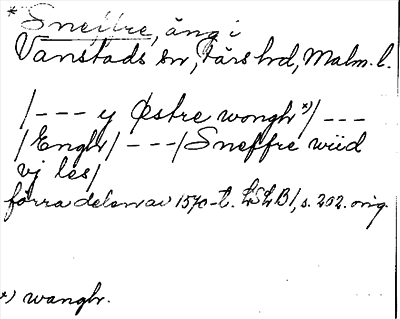 * Sneffre, äng i
Vanstads sn, Färs hrd, Malm. l.
/--- y Østre wongh *)/ ---
/Engh/ ---/Sneffre wiid
vj les/
förra delen av 1570-t. LSLB1, s. 202. orig.
*) wangh.